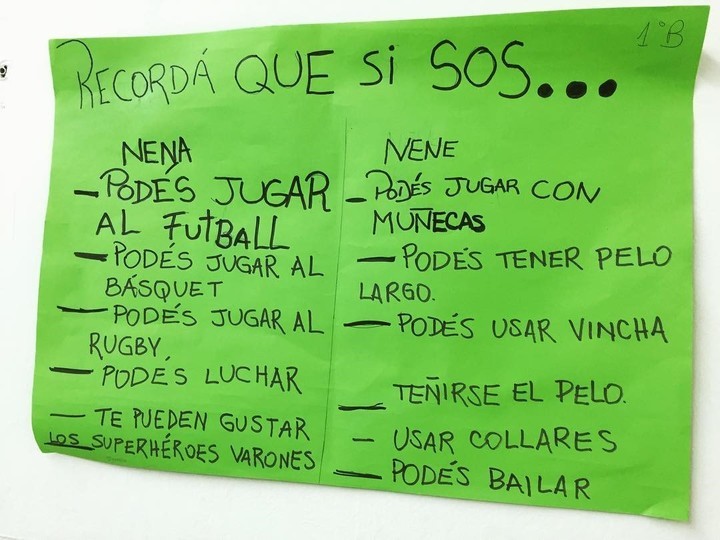 1°B
RECORDÁ QUE Si SOS...
NENA
– PODÉS JUGAR
AL FUTBALL
– PODÉS JUGAR AL
BÁSQUET
– PODÉS JUGAR AL
RUGBY.
– PODÉS LUCHAR
– TE PUEDEN GUSTAR
LOS SUPERHÉROES VARONES
NENE
– PODÉS JUGAR CON
MUÑECAS
– PODÉS TENER PELO
LARGO.
– PODÉS USAR VINCHA
– TEÑIRSE EL PELO.
– USAR COLLARES
– PODÉS BAILAR